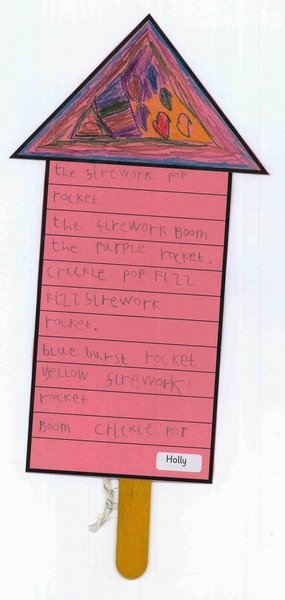 the firework pop
rocket.
the firework Boom
the purple rocket.
crickle pop Fizz
Fizz firework
rocket.
blue burst rocket
yellow firework
rocket
Boom crickle pop
Holly